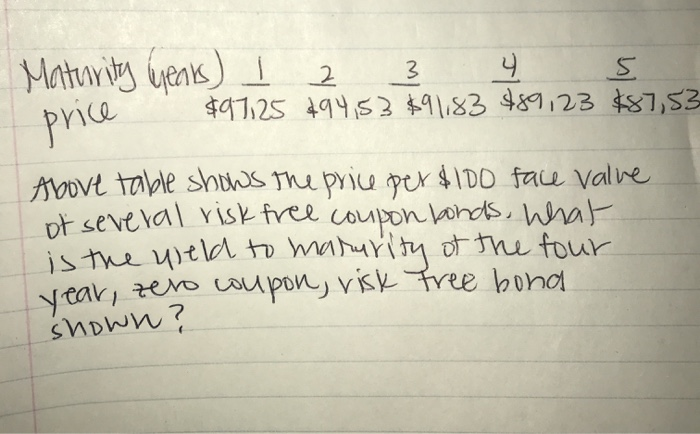 Maturity (years) 1 2 3 4 5
price $97,25 $94,53 $91,83 $89,23 $87,53
Above table shows the price per $100 face value
of several risk free coupon bonds. What
is the yield to maturity of the four
year, zero coupon, risk free bond
shown?